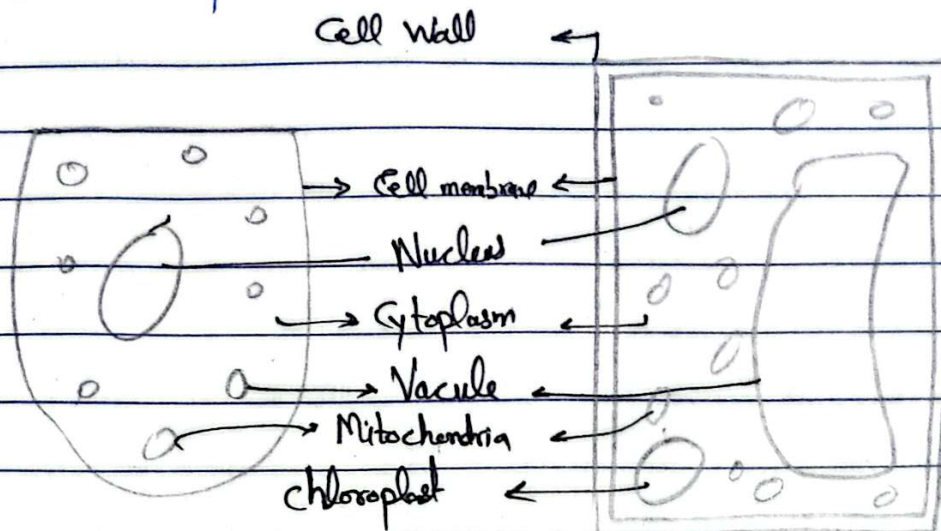 Cell Wall
Cell membrane
Nucleus
Cytoplasm
Vacule
Mitochondria
chloroplast